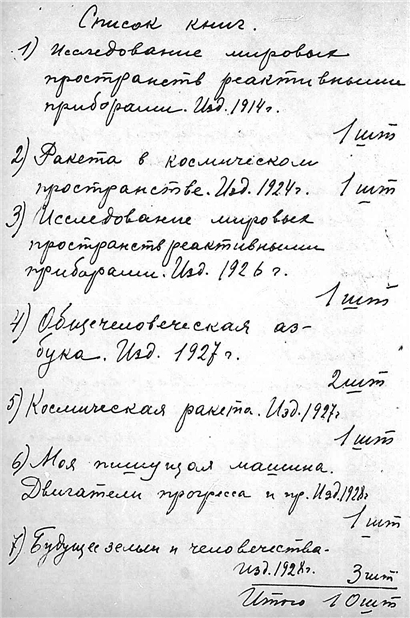 Список книг.
1) Исследование мировых
пространств реактивными
приборами. Изд. 1914г.
1 шт
2) Ракета в космическом
пространстве. Изд. 1924г. 1 шт
3) Исследование мировых
пространств реактивными
приборами. Изд. 1926г.
1 шт
4) Общечеловеческая аз-
бука. Изд. 1927г.
2 шт
5) Космическая ракета. Изд. 1927г.
1 шт
6) Моя пишущая машина.
Двигатели прогресса и пр. Изд 1928г
1 шт
7) Будущее земли и человечества.
Изд. 1928г. 3 шт
Итого 10 шт